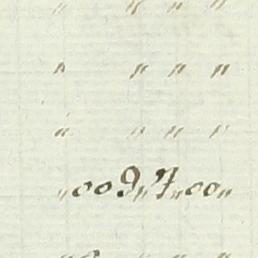 " " " "
" " " "
" " " "
"009"7"00"